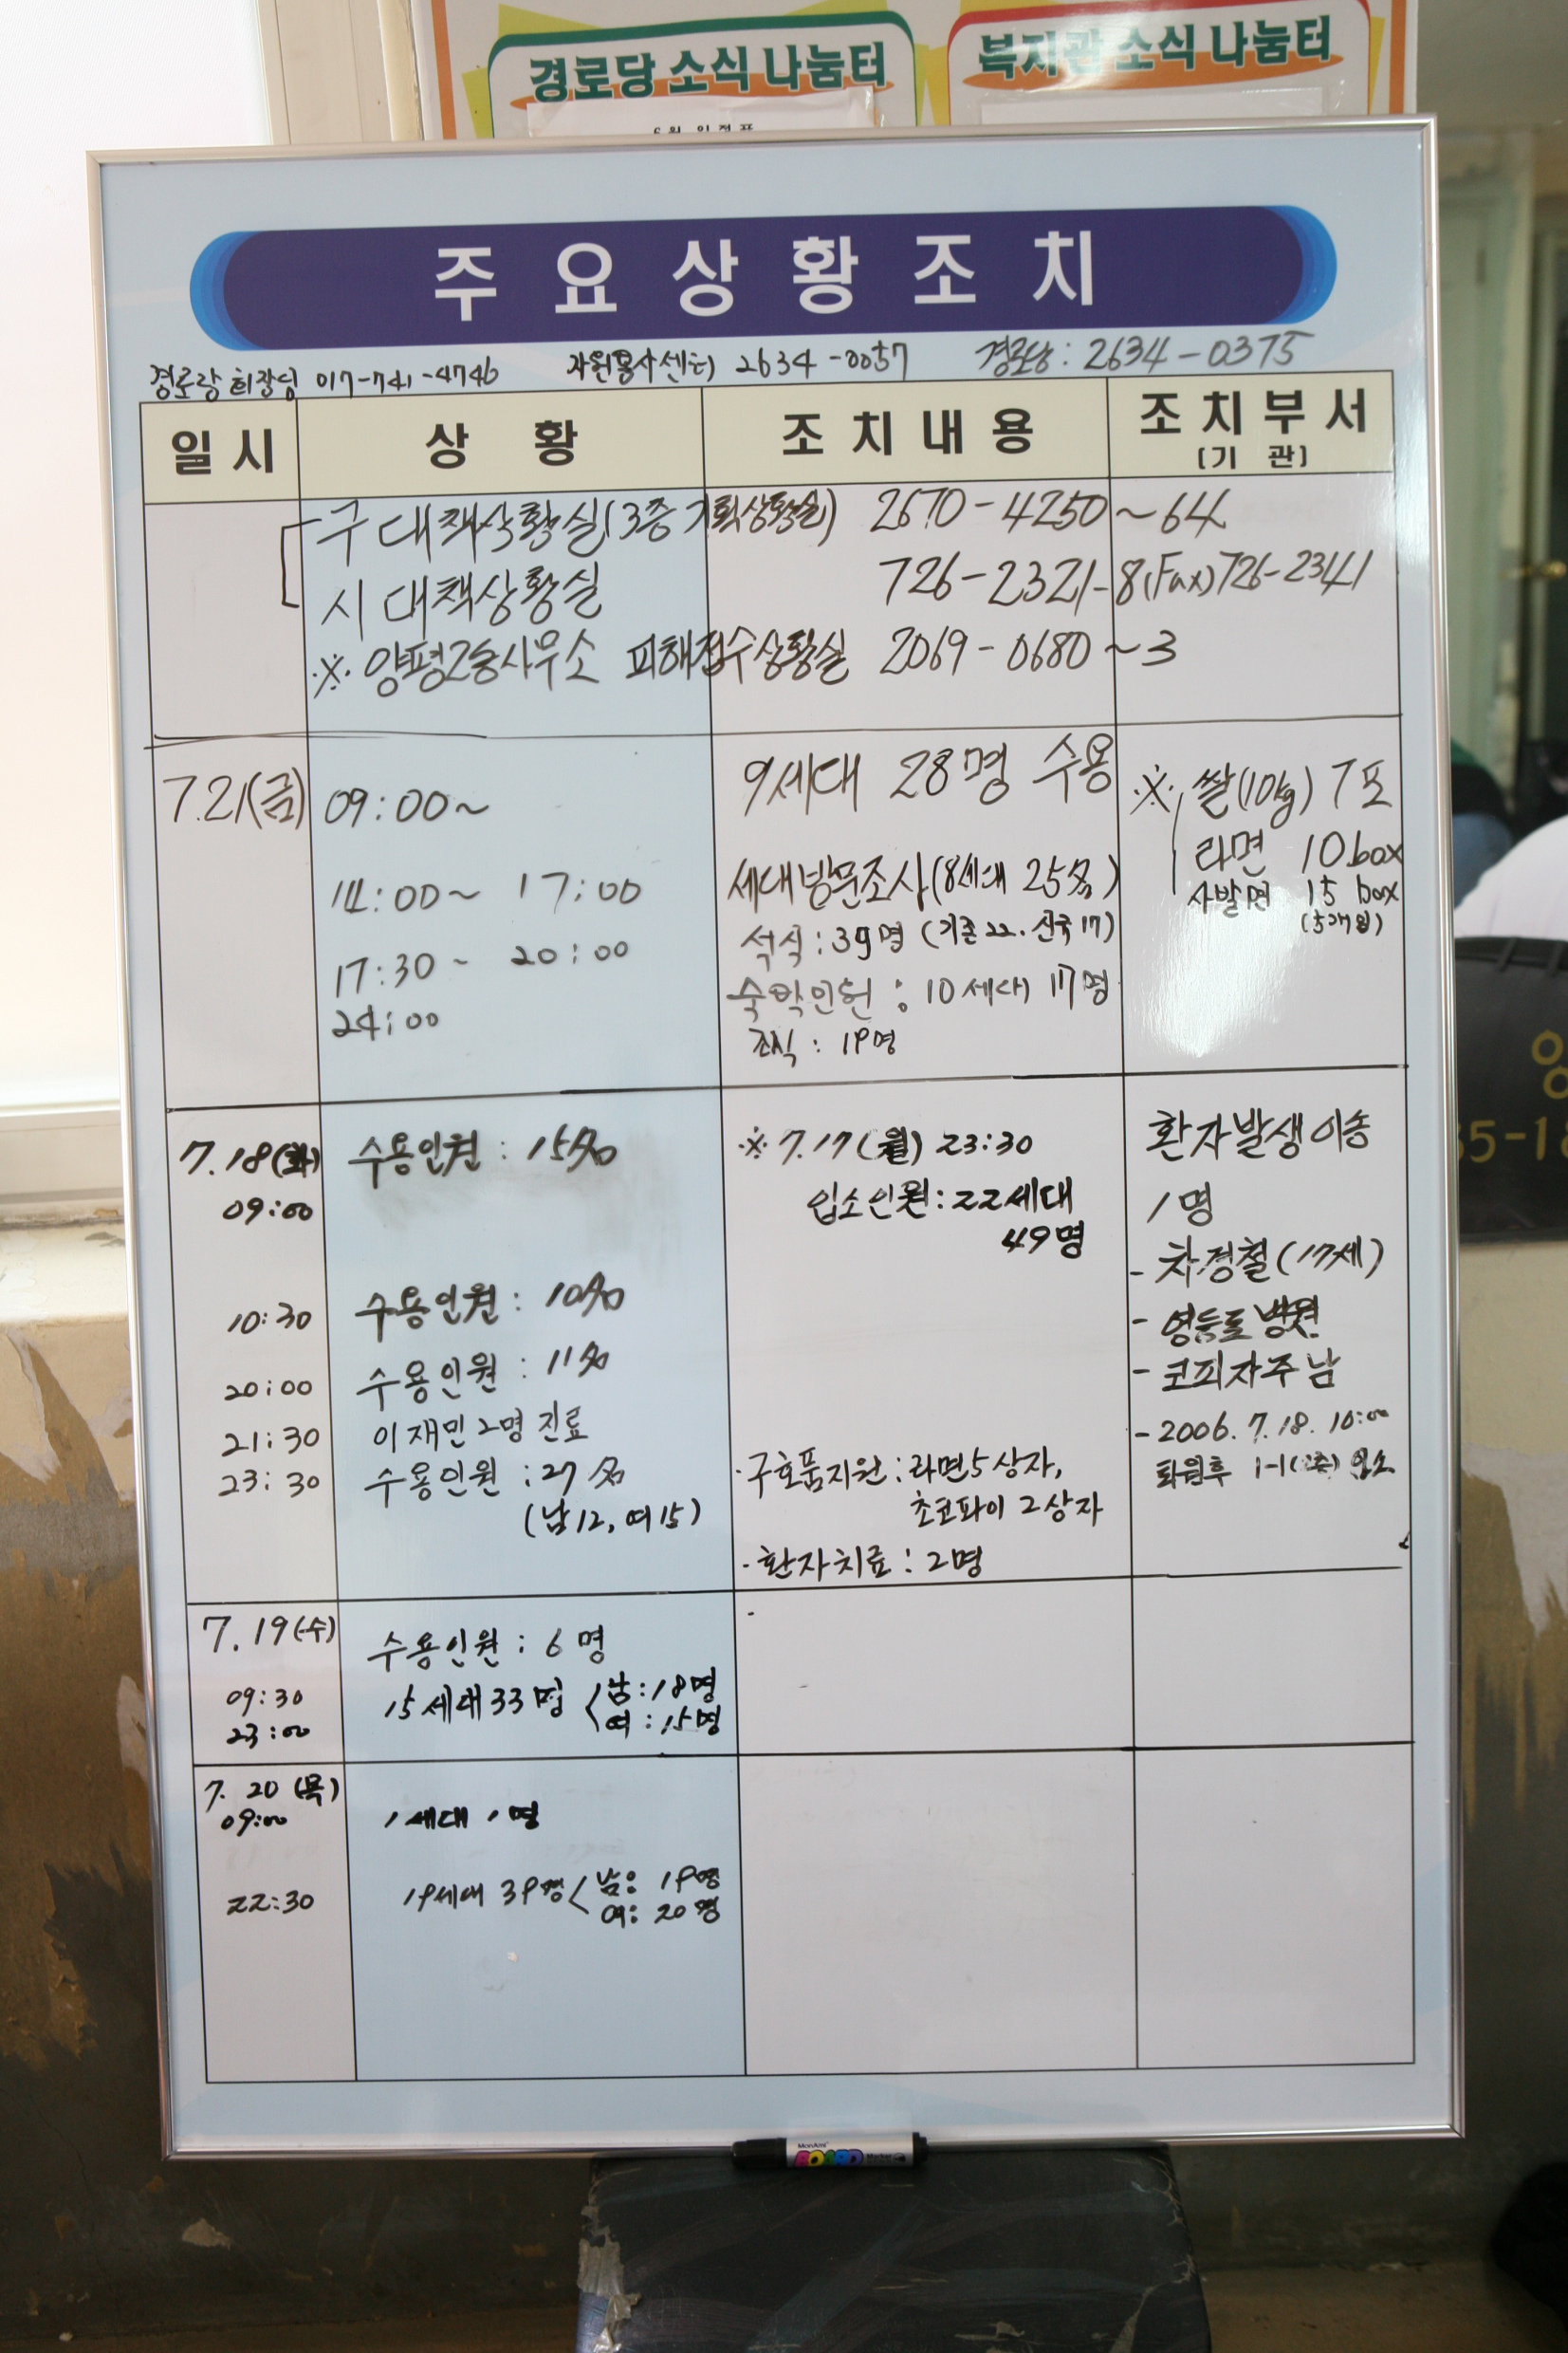 경로당 소식 나눔터
복지관 소식 나눔터
6월 일정표
주요상황조치
경로당 회장님 017-741-4746 자원봉사센터 2634-0057 경로당: 2634-0375
일시 상황 조치내용 조치부서
(기 관)
구 대책상황실(3층 기획상황실) 2670-4250~64
시 대책상황실 726-2321-8(Fax)726-2341
※ 양평2동사무소 피해접수상황실 2069-0680~3
7.21(금) 09:00~ 9세대 28명 수용
14:00~ 17:00 세대방문조사(8세대 25名)
17:30~ 20:00 석식: 39명 (기존22. 신규17)
24:00 숙박인원: 10세대 17명
조식: 19명
※ 쌀(10kg) 7포
라면 10box
사발면 15 box
7.18(화) 수용인원: 15名
09:00
10:30 수용인원: 10名
20:00 수용인원: 11名
21:30 이재민 2명 진료
23:30 수용인원: 27名
(남12, 여15)
※7.17(월) 23:30
입소인원: 22세대
49명
·구호품지원: 라면5상자,
초코파이 2상자
·환자치료: 2명
환자발생이송
1명
- 차정철(17세)
- 영등포병원
- 코피자주남
- 2006. 7. 18. 10:00
퇴원후 입소
7.19(수) 수용인원: 6명
09:30 15세대 33명 남: 18명
23:00 여: 15명
7. 20 (목)
09:00 1세대 1명
22:30 19세대 39명 남: 19명
여: 20명
MonAmi
BOARD
Marker